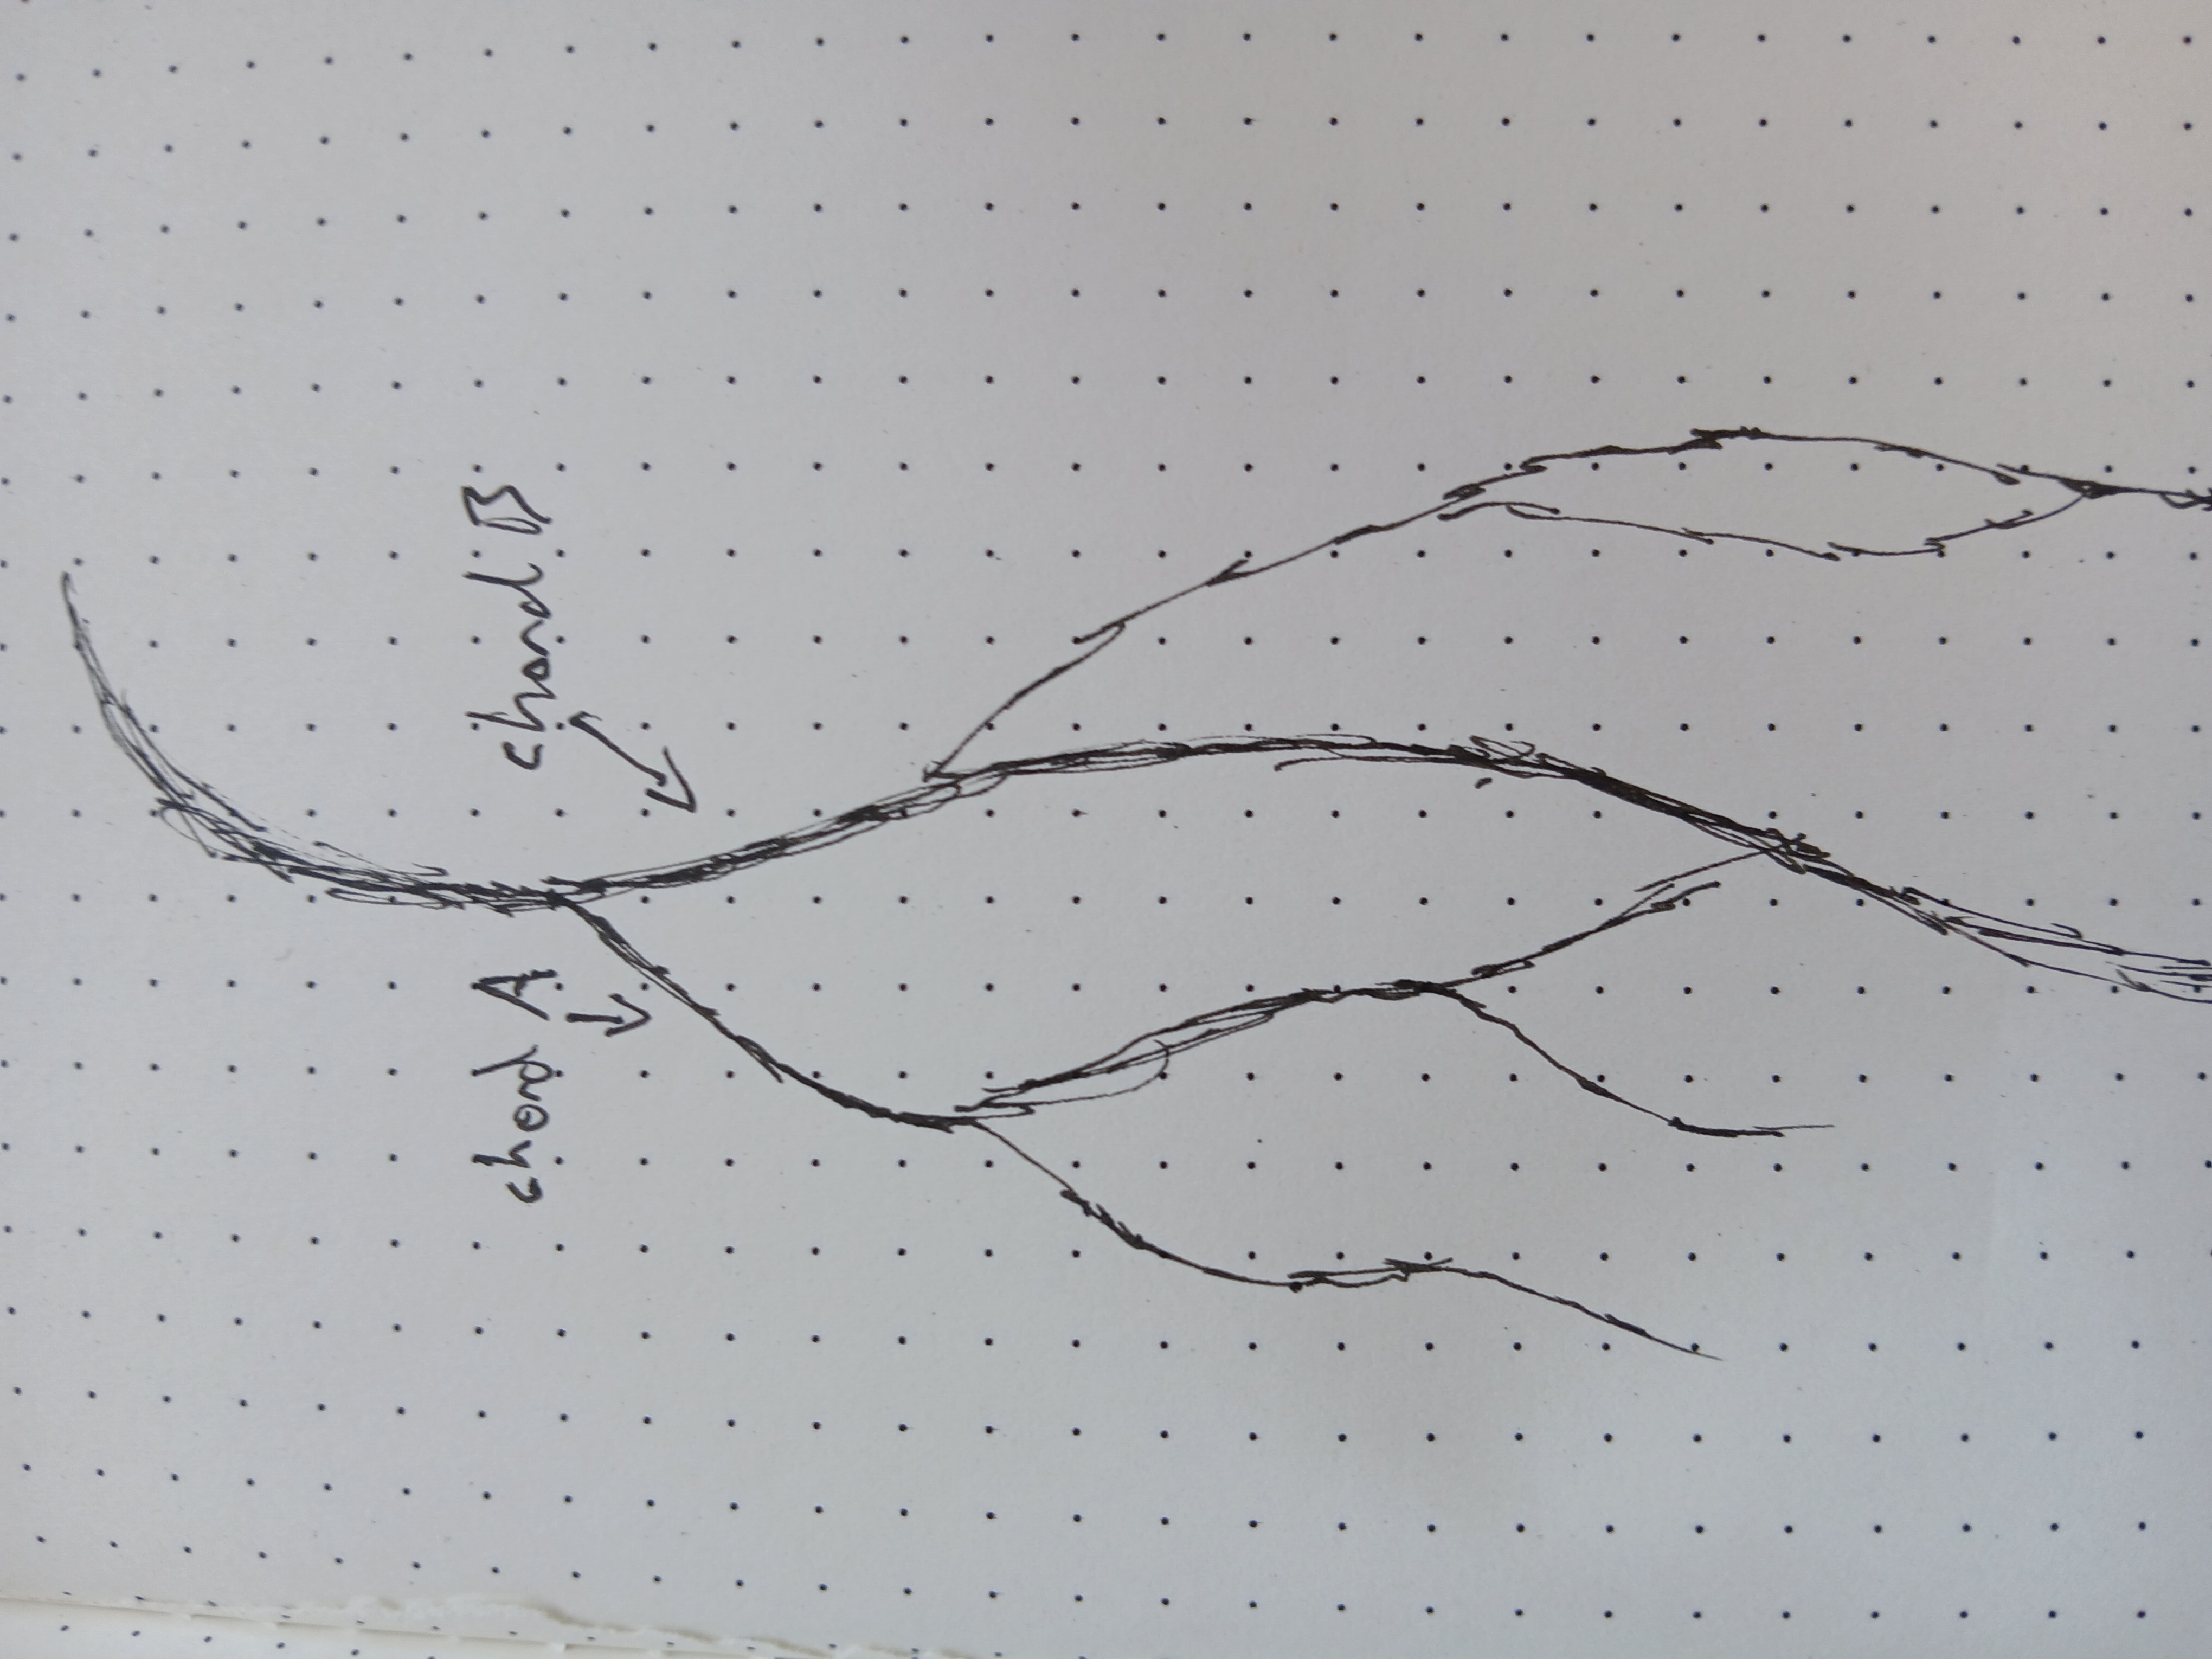 chord A
chord B